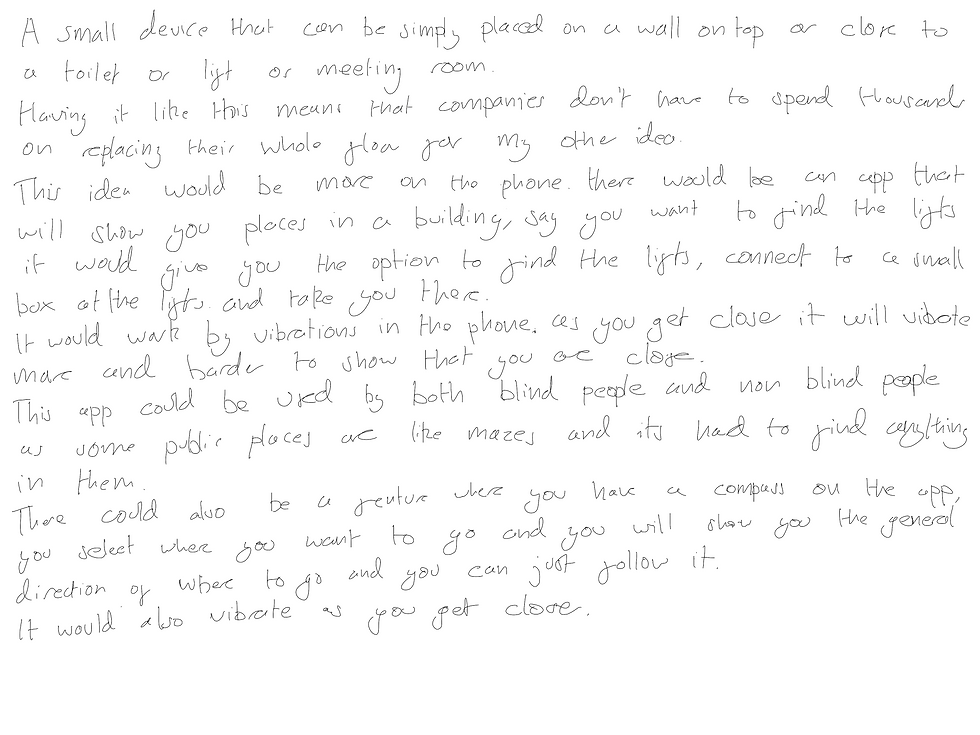 A small device that can be simply placed on a wall on top or close to
a toilet or lift or meeting room.
Having it like this means that companies don't have to spend thousands
on replacing their whole floor for my other idea.
This idea would be more on the phone. there would be an app that
will show you places in a building, say you want to find the lifts
it would give you the option to find the lifts, connect to a small
box at the lifts and take you there.
It would work by vibrations in the phone. as you get close it will vibrate
more and harder to show that you are close.
This app could be used by both blind people and non blind people
as some public places are like mazes and its hard to find anything
in them.
There could also be a feature where you have a compass on the app,
you select where you want to go and you will show you the general
direction of where to go and you can just follow it.
It would also vibrate as you get close.